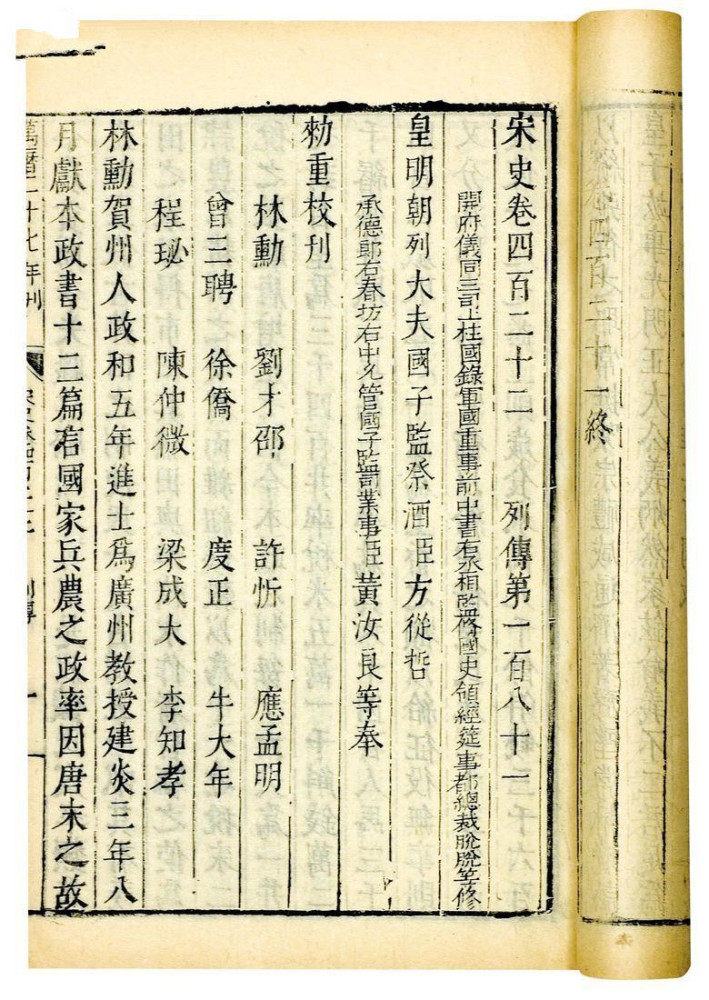 四百二十一終
宋史卷四百二十二 列傳第一百八十一
開府儀同三司上柱國錄軍國重事前中書右丞相監修國史領經筵事都總裁脫脫等修
皇明朝列大夫國子監祭酒臣方從哲
承德郎右春坊右中允管國子監司業事臣黃汝良等奉
勑重校刊
林勳 劉才邵 許忻 應孟明
曾三聘 徐僑 度正 牛大年
程珌 陳仲微 梁成大 李知孝
林勳賀州人政和五年進士爲廣州教授建炎三年八
月獻本政書十三篇言國家兵農之政率因唐末之故
萬曆二十七年刊 列傳 一